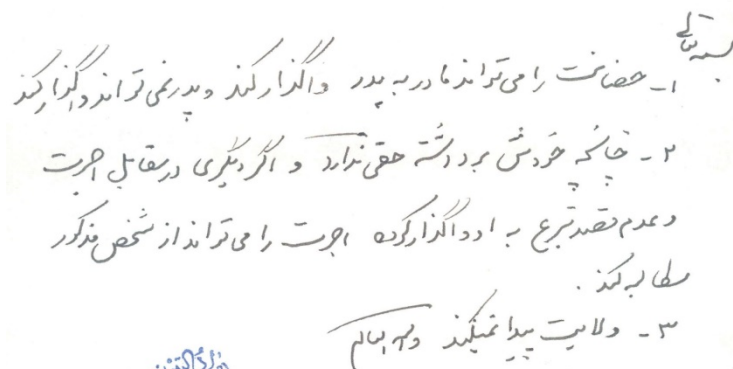 بسمه تعالی
۱- حضانت را می‌تواند مادر به پدر واگذار کند و پدر نمی‌تواند واگذار کند
۲- چنانچه خودش برداشته حقی ندارد و اگر دیگری در مقابل اجرت
و عدم قصد تبرع به او واگذار کرده اجرت را می‌تواند از شخص مذکور
مطالبه کند.
۳- ولایت پیدا نمیکند والله العالم